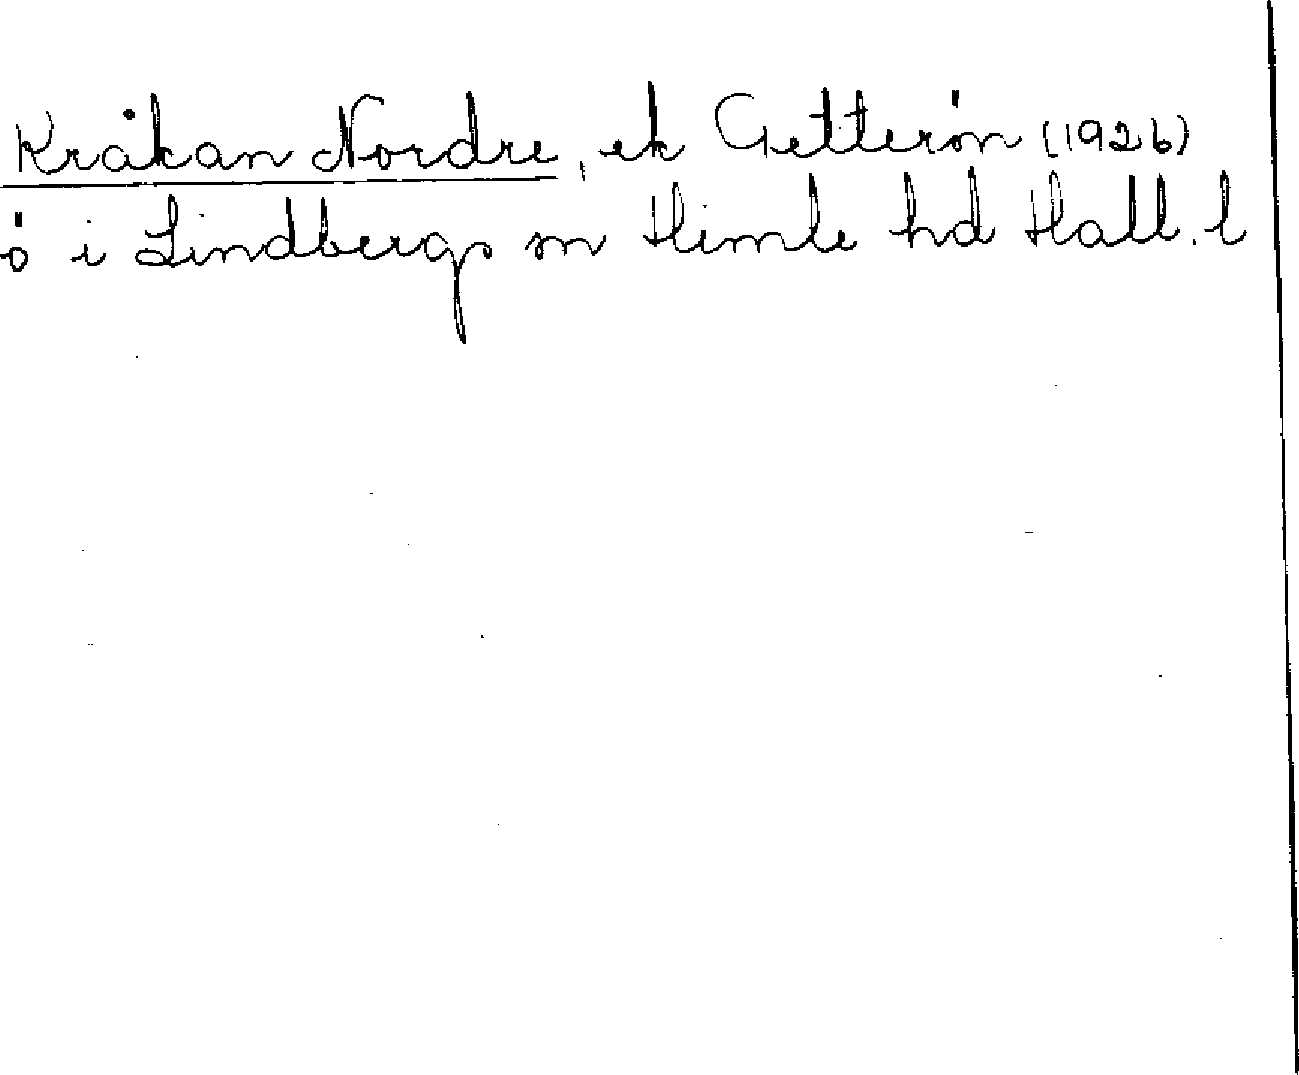 Kråkan Nordre, ek Getterön (1926)
ö i Lindbergs sn Himle hd Hall. l